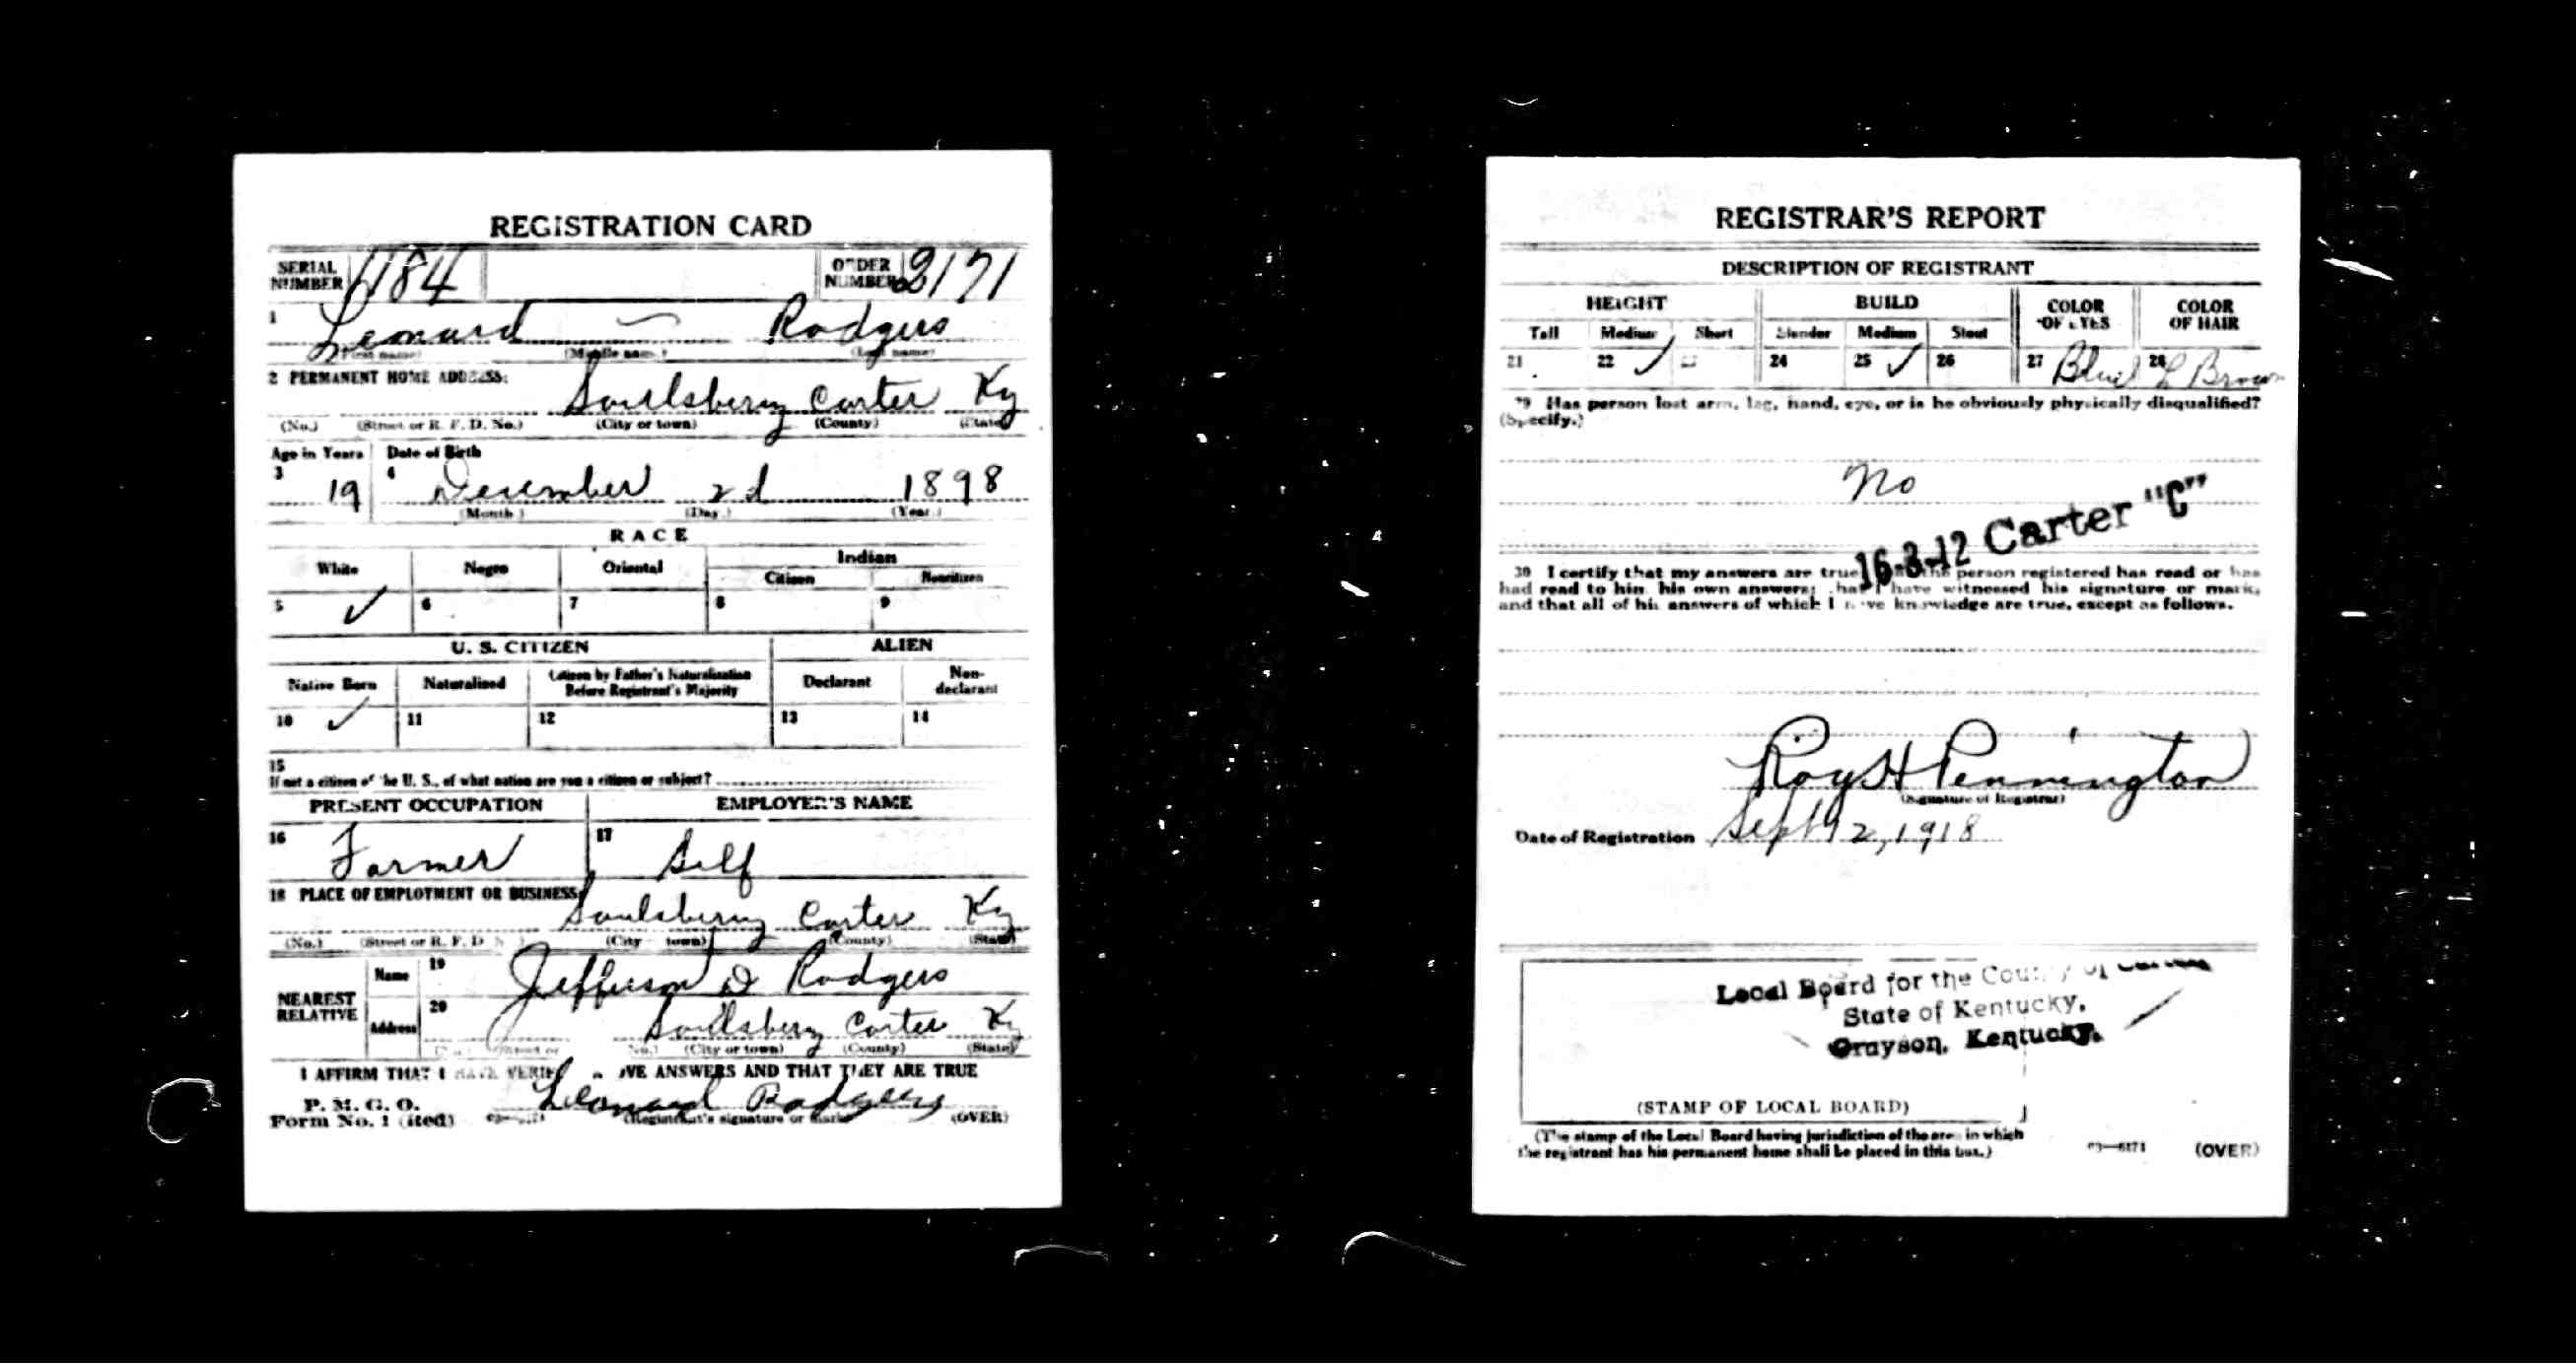 REGISTRATION CARD
SERIAL NUMBER 1184 ORDER NUMBER 2171
1 Leonard — Rodgers
(First name) (Middle name) (Last name)
2 PERMANENT HOME ADDRESS:
Soulsberry Carter Ky
(No.) (Street or R. F. D. No.) (City or town) (County) (State)
Age in Years Date of Birth
3 19 4 December 2d 1898
(Month.) (Day.) (Year.)
RACE
White Negro Oriental Indian
Citizen Noncitizen
5 ✓ 6 7 8 9
U. S. CITIZEN ALIEN
Native Born Naturalized Citizen by Father's Naturalization Before Registrant's Majority Declarant Non-declarant
10 ✓ 11 12 13 14
15
If not a citizen of the U. S., of what nation are you a citizen or subject?
PRESENT OCCUPATION EMPLOYER'S NAME
16 Farmer 17 Self
18 PLACE OF EMPLOYMENT OR BUSINESS:
Soulsberry Carter Ky
(No.) (Street or R. F. D. No.) (City or town) (County) (State)
NEAREST RELATIVE
Name 19 Jefferson D Rodgers
Address 20 Soulsberry Carter Ky
(No.) (Street or R. F. D. No.) (City or town) (County) (State)
I AFFIRM THAT I HAVE VERIFIED ABOVE ANSWERS AND THAT THEY ARE TRUE
P. M. G. O.
Form No. 1 (Red) Leonard Rodgers
(Registrant's signature or mark) (OVER)
REGISTRAR'S REPORT
DESCRIPTION OF REGISTRANT
HEIGHT BUILD COLOR OF EYES COLOR OF HAIR
Tall Medium Short Slender Medium Stout
21 22 ✓ 23 24 25 ✓ 26 27 Blue 28 L Brown
29 Has person lost arm, leg, hand, eye, or is he obviously physically disqualified?
(Specify.)
No
16-3-12 Carter "C"
30 I certify that my answers are true; that the person registered has read or has
had read to him his own answers; that I have witnessed his signature or mark,
and that all of his answers of which I have knowledge are true, except as follows.
Roy H Pennington
(Signature of Registrar)
Date of Registration Sept 12, 1918
Local Board for the County of Carter
State of Kentucky,
Grayson, Kentucky.
(STAMP OF LOCAL BOARD)
(The stamp of the Local Board having jurisdiction of the area in which
the registrant has his permanent home shall be placed in this box.)
03—6171 (OVER)